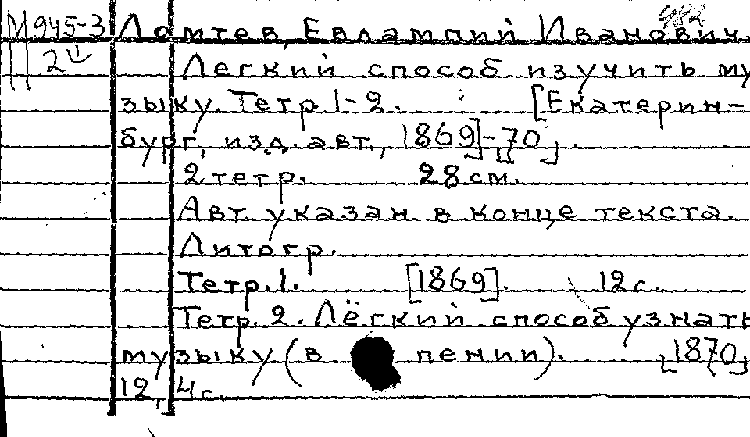 М945-3 Ломтев, Евлампий Иванович.
2
Легкий способ изучить му
зыку. Тетр 1-2. [Екатерин-
бург, изд. авт., 1869]-[70].
2 тетр. 28 см.
Авт. указан в конце текста.
Литогр.
Тетр. 1. [1869]. 12 с.
Тетр. 2. Лёгкий способ узнать
музыку (в пении). [1870]
12, 4 с.